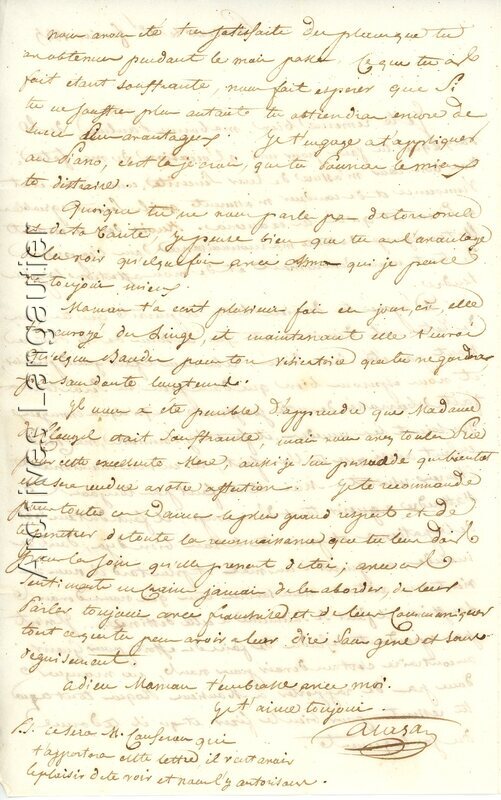 nous avons été tres satisfaits des places que tu
as obtenues pendant le mois passé. Ce que tu as
fait etant souffrante, nous fait esperer que Si
tu ne souffres plus autant tu obtiendras encore de
Succes plus avantageux. Je t'engage a t'appliquer
au Piano, c'est la je crois, que tu Pourras le mieux
te distraire.
Quoique tu ne nous parles pas de ton oncle
et de ta Tante, je pense bien que tu as l'avantage
de les voir quelques fois avec qui je pense
toujours mieux.
Maman t'a ecrit plusieurs fois ces jours, ci, elle
envoyé du Linge, et maintenant elle t'envoie
quelques Bandes pour ton vésicatoire que tu ne garderas
pas sans doute longtems.
Il nous a été penible d'apprendre que Madame
était Souffrante, mais vous avez toutes Prié
pour cette excellente Mere, aussi je suis persuadé que bientot
elle sera rendue a votre affection. Je te recommande
pour toutes ces Dames le plus grand respect et de
de toute la reconnaissance que tu leur dois
pour les Soins qu'elles prenent de toi; avec ces
Sentiments ne crains jamais de les aborder de leur
Parler toujours avec franchise et de leur Communiquer
tout ce que tu peux avoir a leur dire Sans gêne et Sans
deguisement.
Adieu Maman t'embrasse avec moi.
Je t'aime toujours.
P.S. ce sera M. qui
t'apportera cette lettre il veut avoir
le plaisir de te voir et nous l'y autorisons.
Archives Langautier